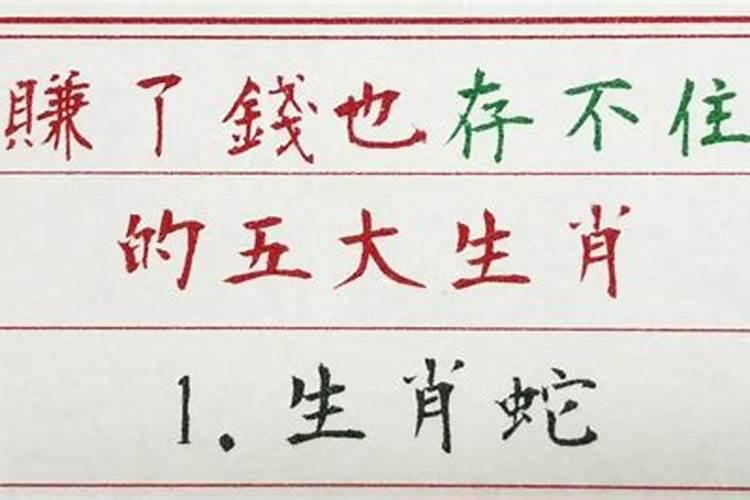 賺了錢也存不住
的五大生肖
1.生肖蛇